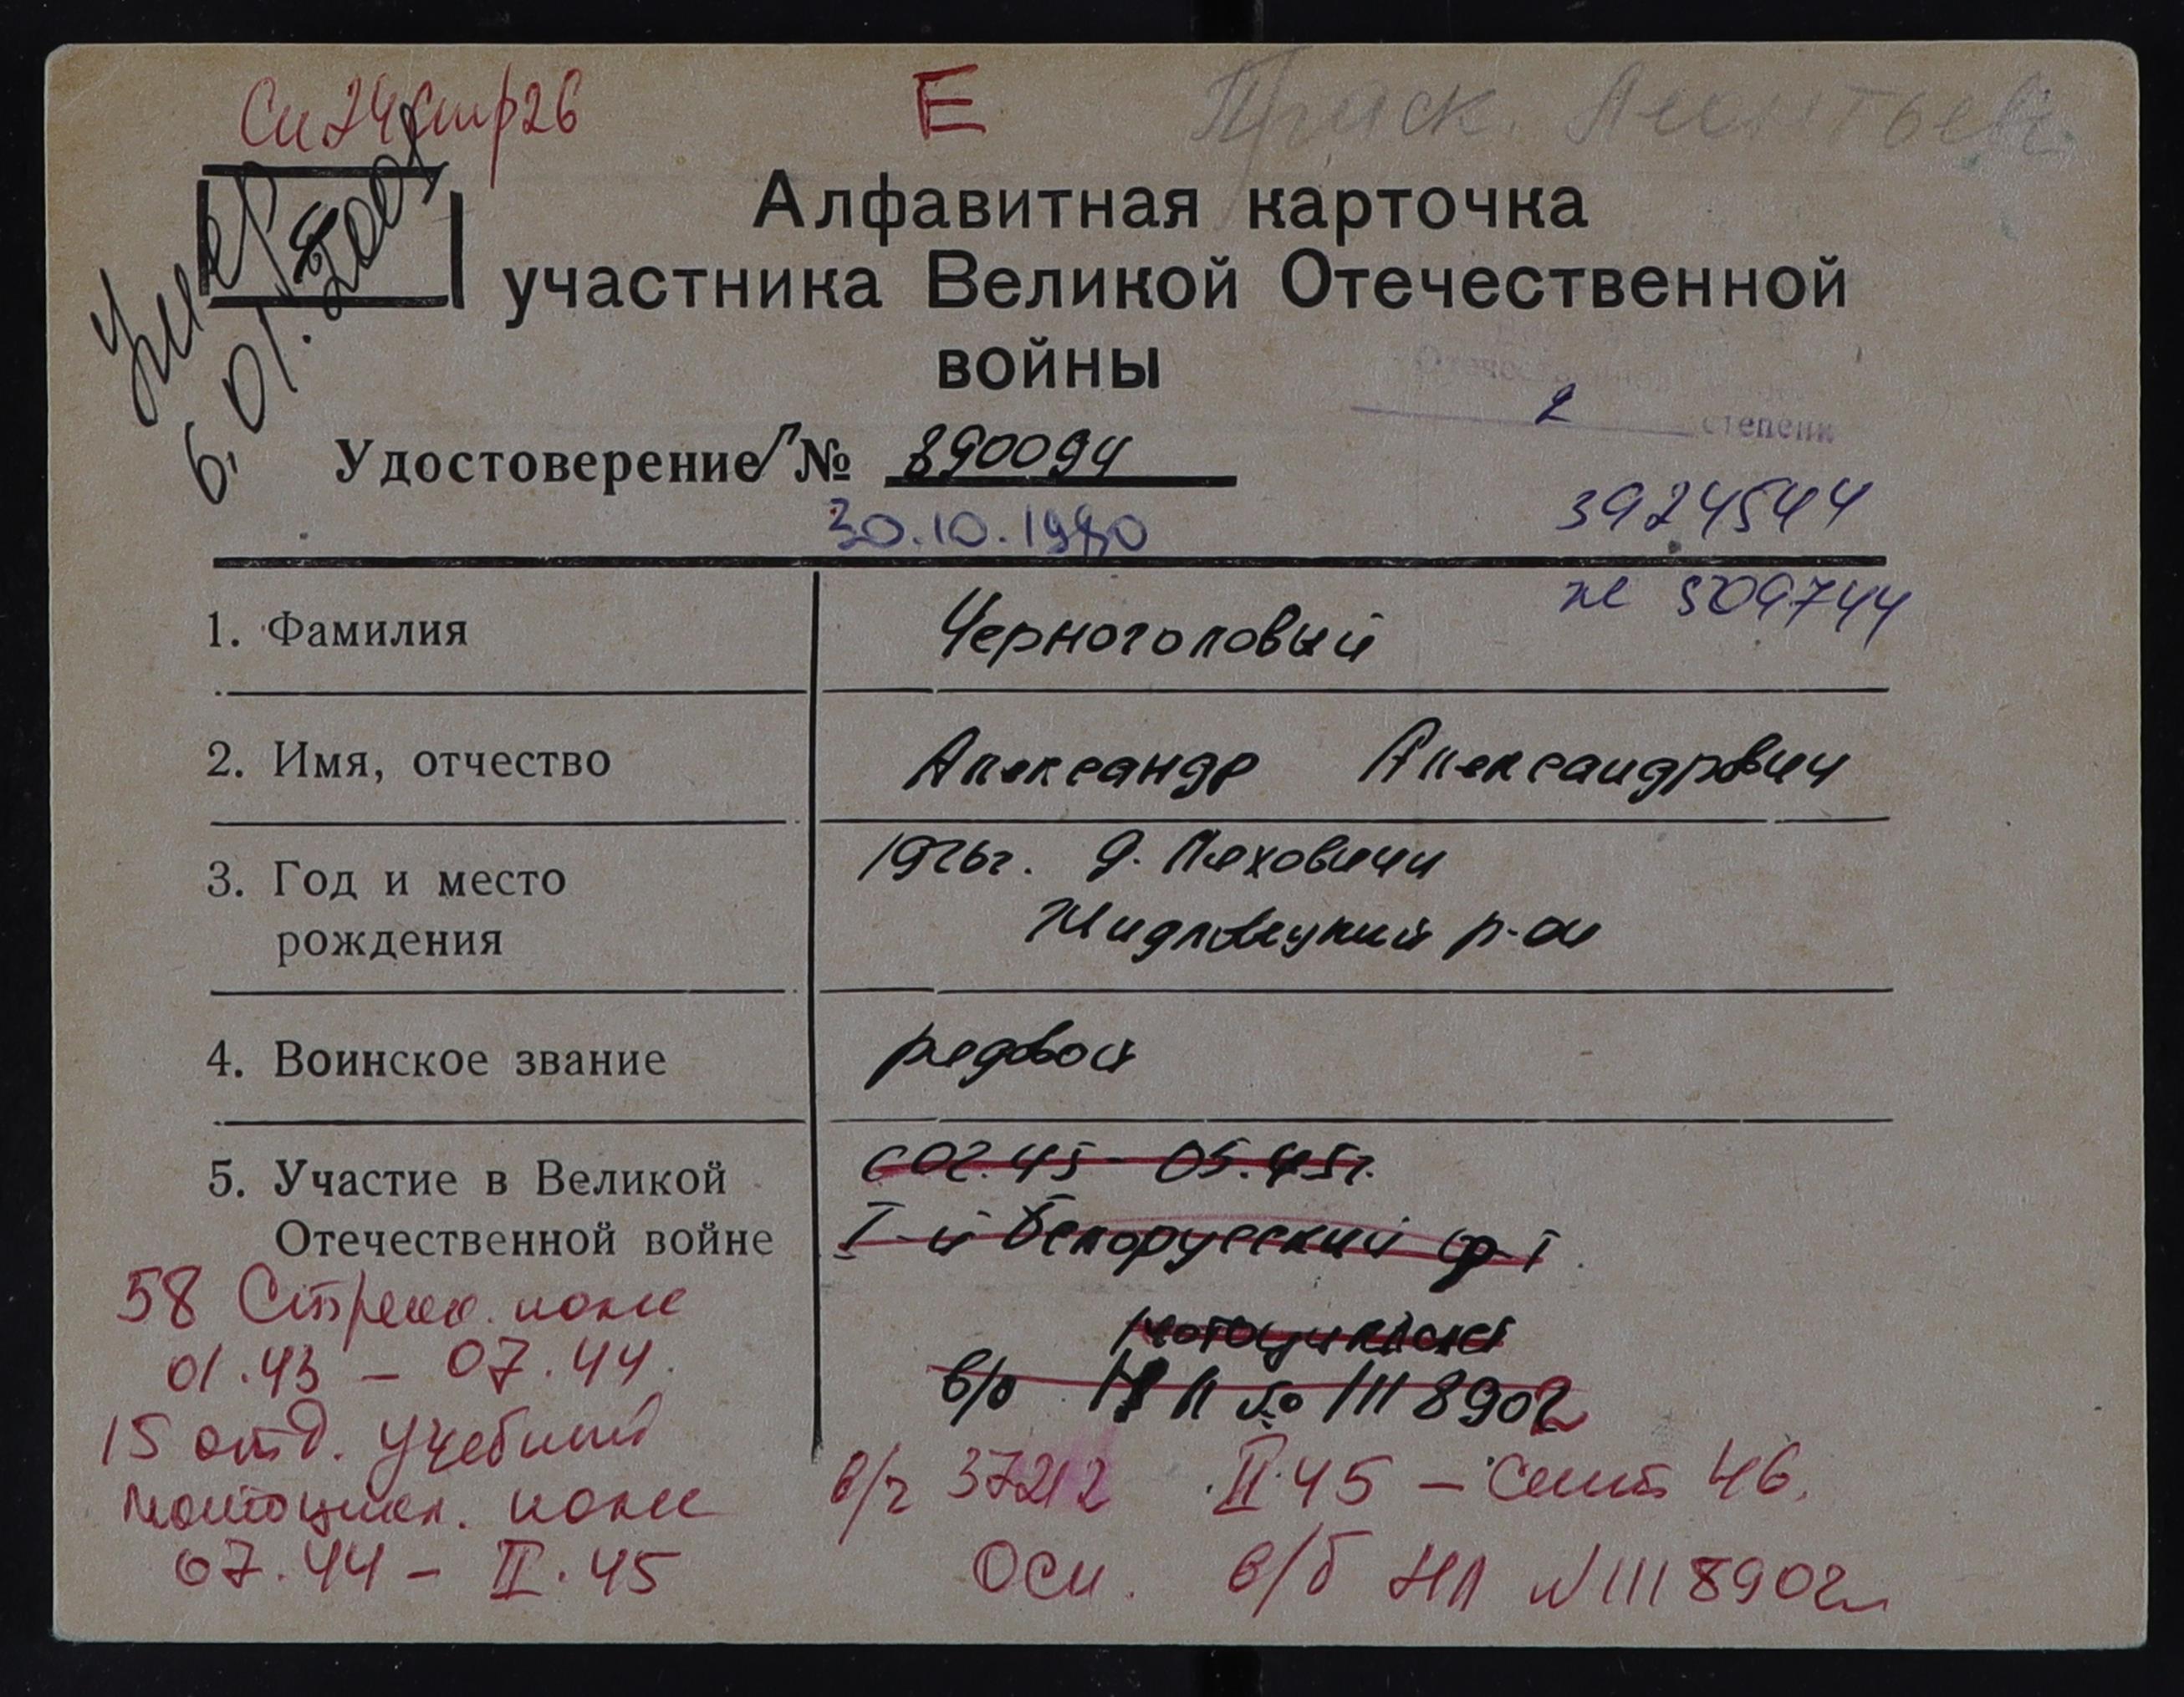 Сп 24 стр 26
Е
Праск. Леонтьев
6.01.2001
Алфавитная карточка
участника Великой Отечественной
войны
2 степени
Удостоверение Г № 890094
30.10.1980
3924544
1. Фамилия
Черноголовый
2. Имя, отчество
Александр Александрович
3. Год и место
рождения
1926г. д. Ляховичи
р-он
4. Воинское звание
рядовой
5. Участие в Великой
Отечественной войне
с 02.45 - 05.45г.
I-й Белорусский ф-т
в/б НЛ № III 8902
58 Стрелк. полк
01.43 - 07.44.
15 отд. учебный
мотоцикл. полк
07.44 - II.45
в/ч 37212 II.45 - Сент 46.
Осн. в/б НЛ № III 8902